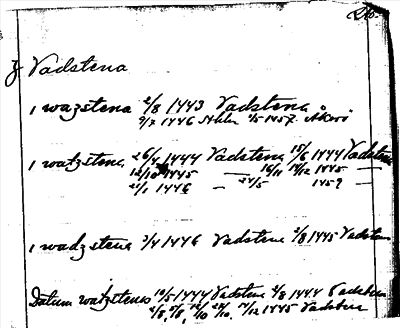 Vadstena
i wazstena 2/8 1443 Vadstena
9/7 1446 1457. Åkerö
i watzstena 26/4 1444 Vadstena 15/6 1444 Vadstena
12/10 1445 — 16/11 14/12 1445 —
21/1 1446 — 24/5 1459 —
i wadzstena 3/4 1446 Vadstena 2/8 1445 Vadstena
Datum watzstenos 10/5 1444 Vadstena 4/8 1444 Vadstena
1445 Vadstena